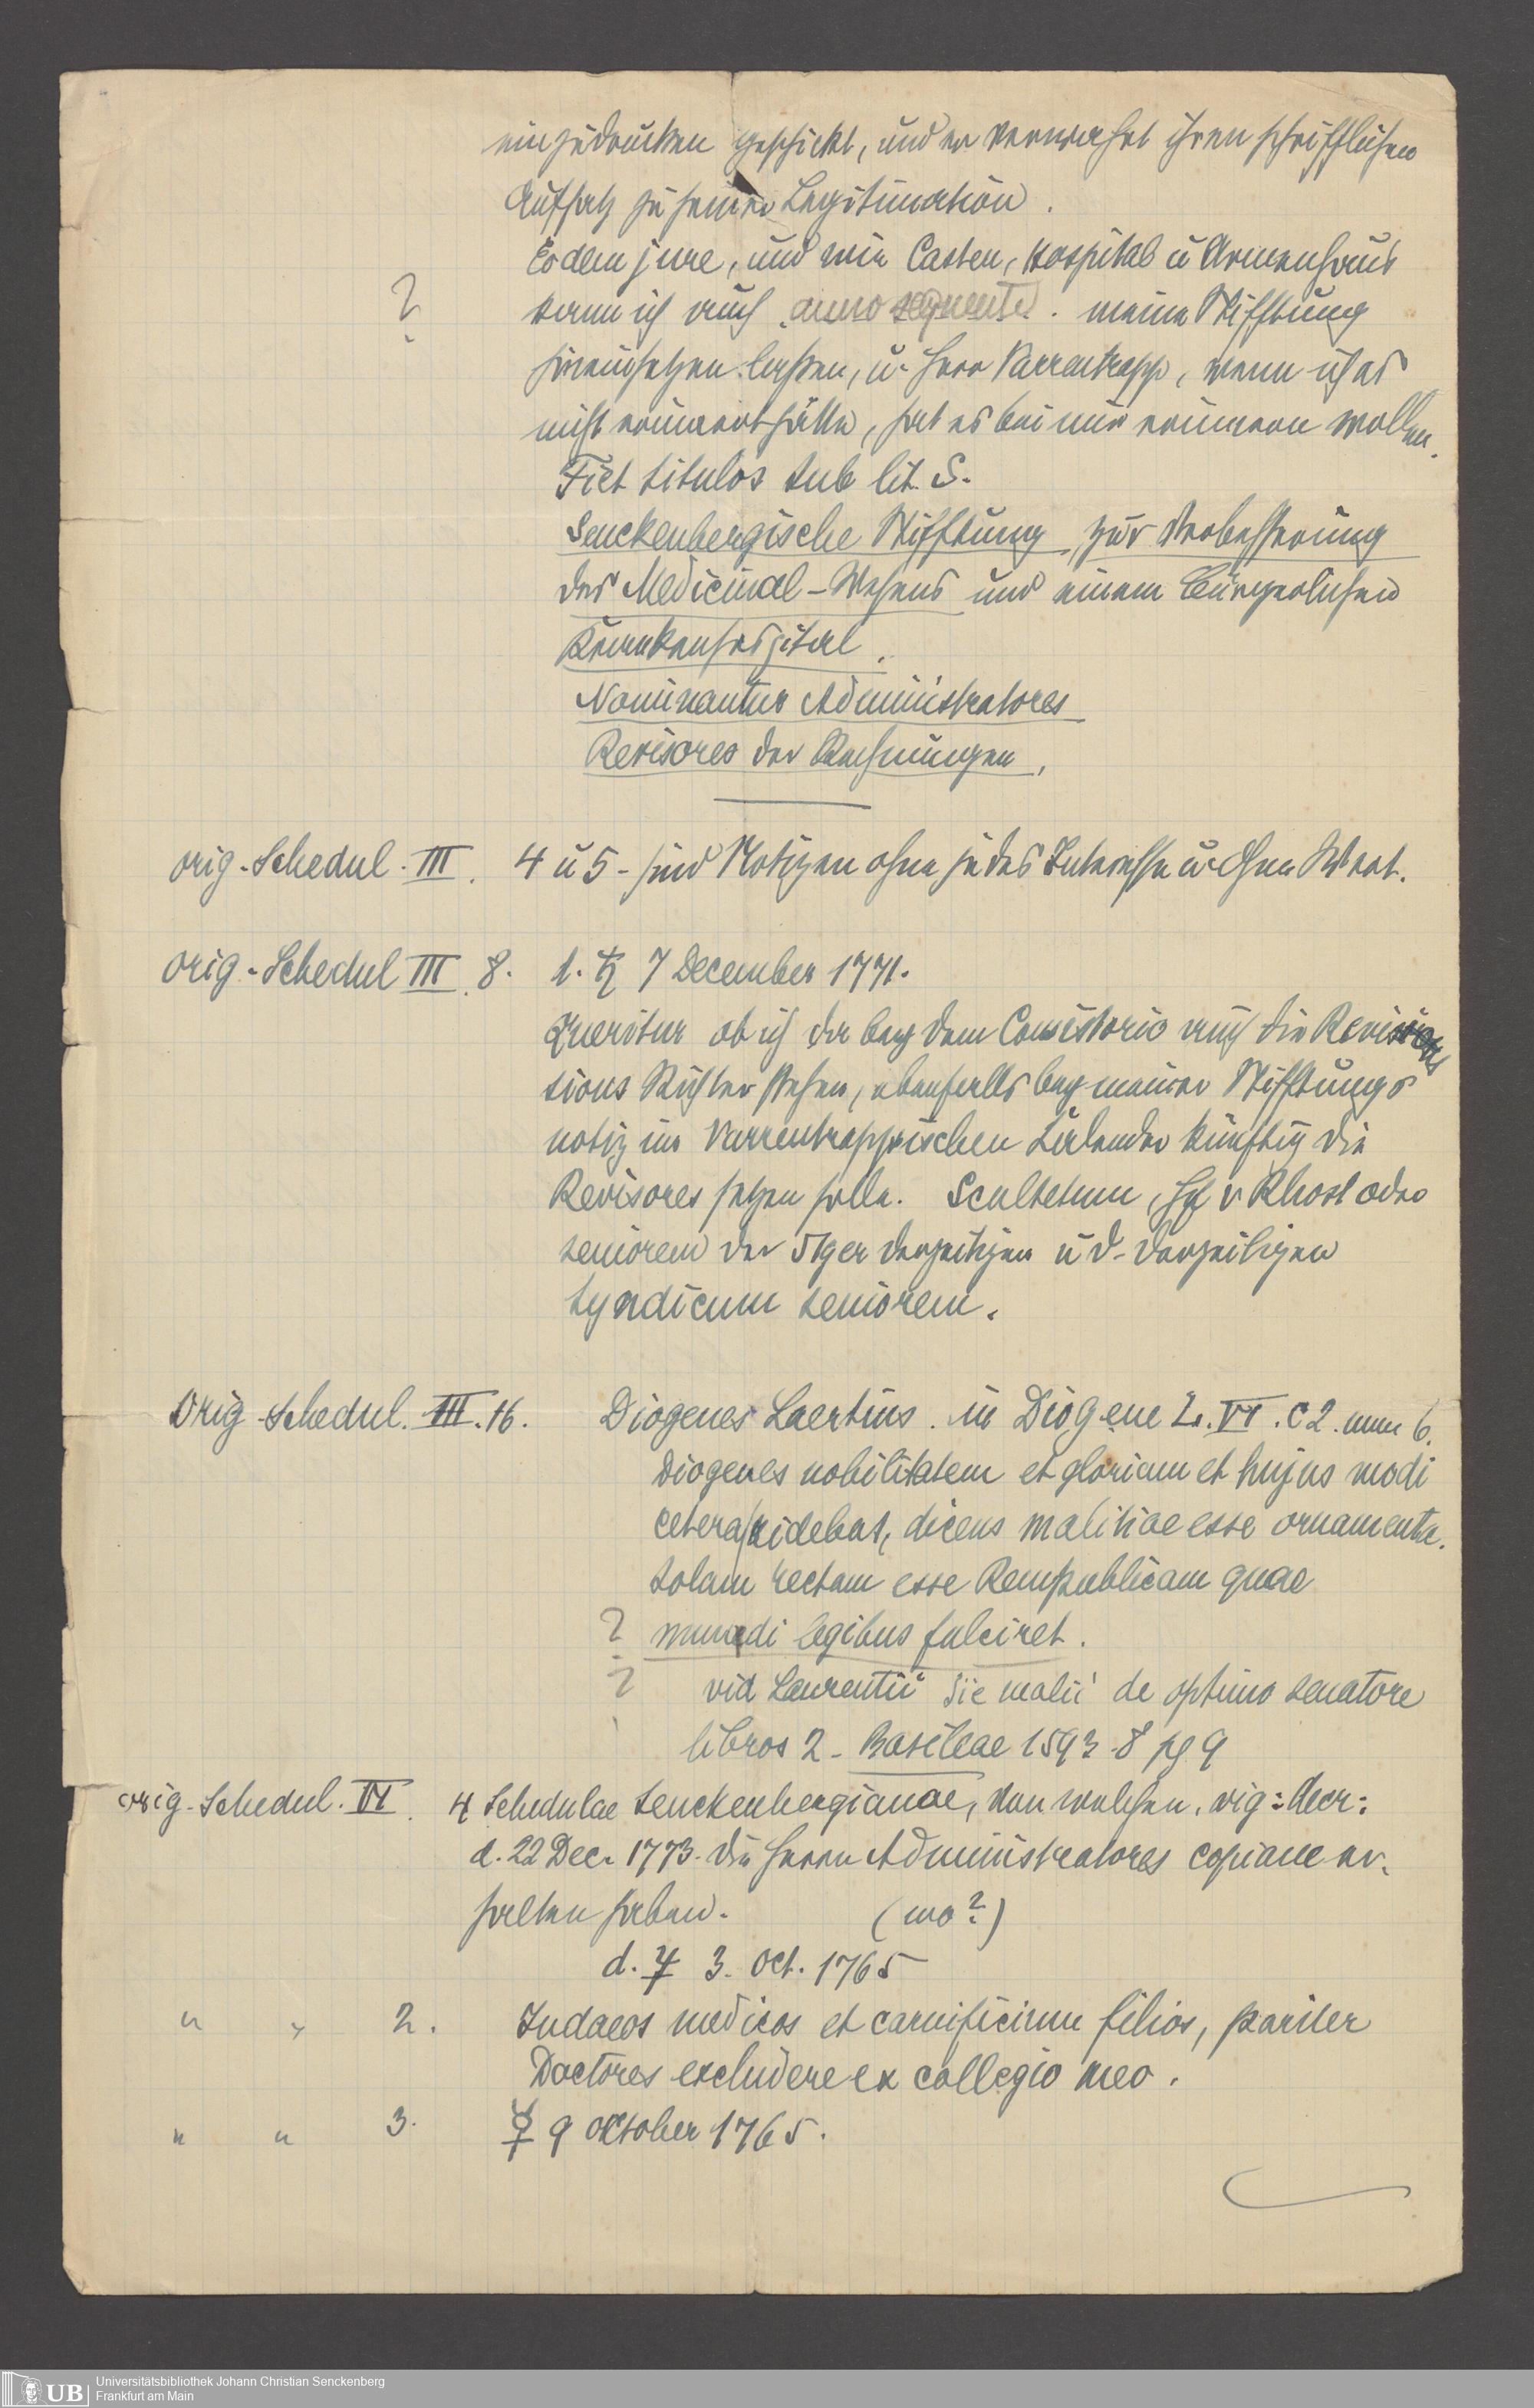 einzudrucken geschickt, und er verwahrt ihren schrifftlichen
Aufsatz zu seiner Legitimation.
Eodem jure, und wie Casten, Hospital u Armenhaus
? kann ich auch anno sequente. meine Stifftung
hineinsetzen lassen, u. Herr Varrentrapp, wenn ich es
nicht erinnert hätte, hat es bei mir erinnern wollen.
Fiet titulos sub lit. S.
Senckenbergische Stifftung, zur Verbesserung
des Medicinal-Wesens und einem Bürgerlichen
Krankenhospital.
Nominantur Administratores
Revisores der Rechnungen.
orig-Schedul. III. 4 u 5 - sind Notizen ohne jedes Interesse u. ohne Wert.
orig-Schedul III. 8. d. ♄ 7 December 1771.
Queritur ob ich da bey dem Consistorio auch die Revisions
sions Richter stehen, ebenfalls bey meiner Stifftungs
notiz im Varrentrappischen Calender künftig die
Revisores setzen solle. Scultetum, H v Rhost oder
seniorem der 51ger derzeitigen u d. derzeitigen
Syndicum seniorem.
Orig-Schedul. III. 16. Diogenes Laertius. in Diogene L. VI. C 2. num 6.
Diogenes nobilitatem et gloriam et hujus modi
cetera ridebat, dicens malitiae esse ornamenta.
solam rectam esse Rempublicam quae
? mundi legibus fulciret.
? vid Laurentii malii de optimo senatore
libros 2 - Basileae 1593. 8 pg 9
orig-Schedul. VI. 4 Schedulae Senckenbergianae, von welchen, vig: decr:
d. 22 Dec. 1773. die Herrn Administratores copiam er-
halten haben. (wo?)
d. ♃ 3. Oct. 1765
" " 2. Judaeos medicos et carnificium filios, pariter
Doctores excludere ex collegio meo.
" " 3. ☿ 9 Oktober 1765.
Universitätsbibliothek Johann Christian Senckenberg
UB Frankfurt am Main